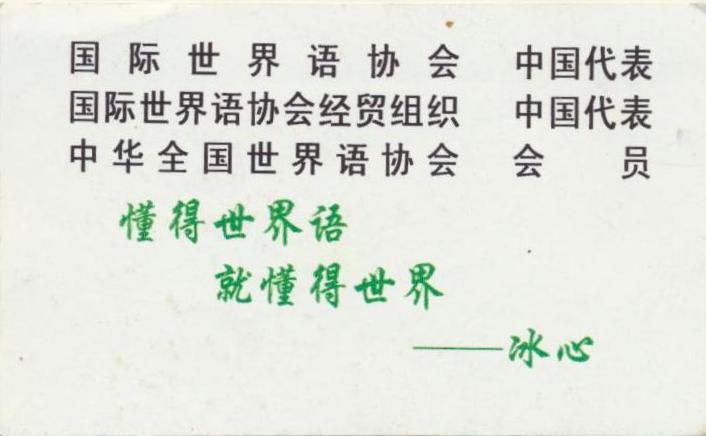 国际世界语协会 中国代表
国际世界语协会经贸组织 中国代表
中华全国世界语协会 会员
懂得世界语
就懂得世界
——冰心